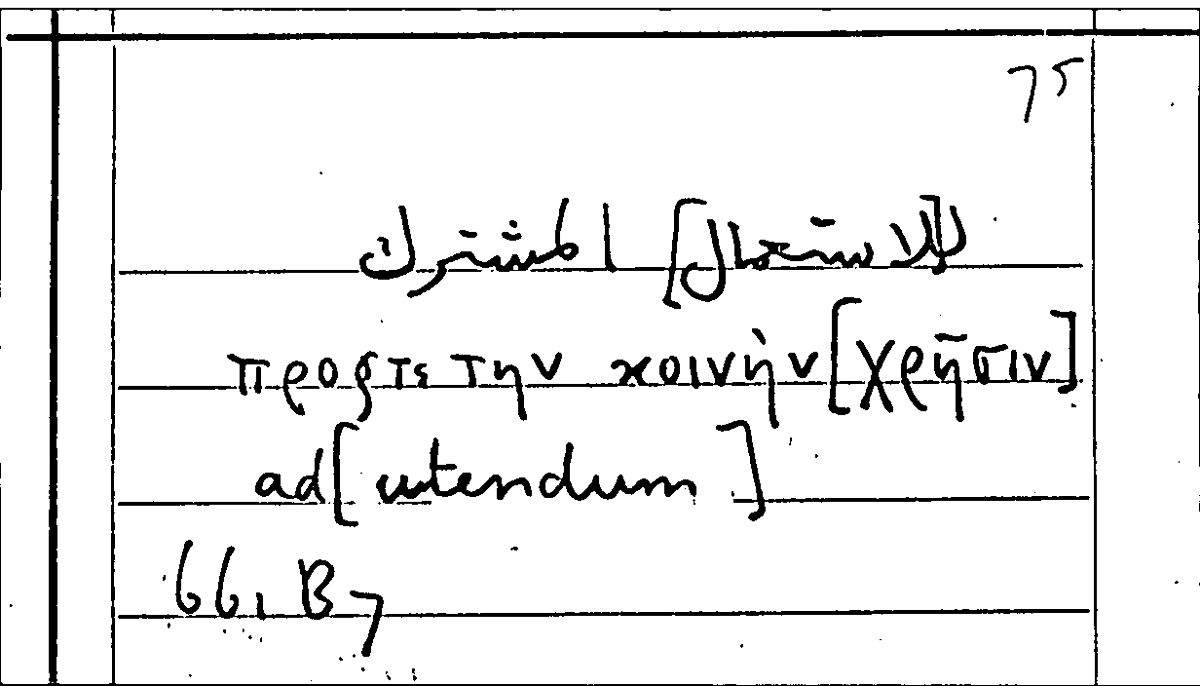 75
[للاستعمال] المشترك
προς τε την κοινὴν [χρῆσιν]
ad [utendum]
66, B 7